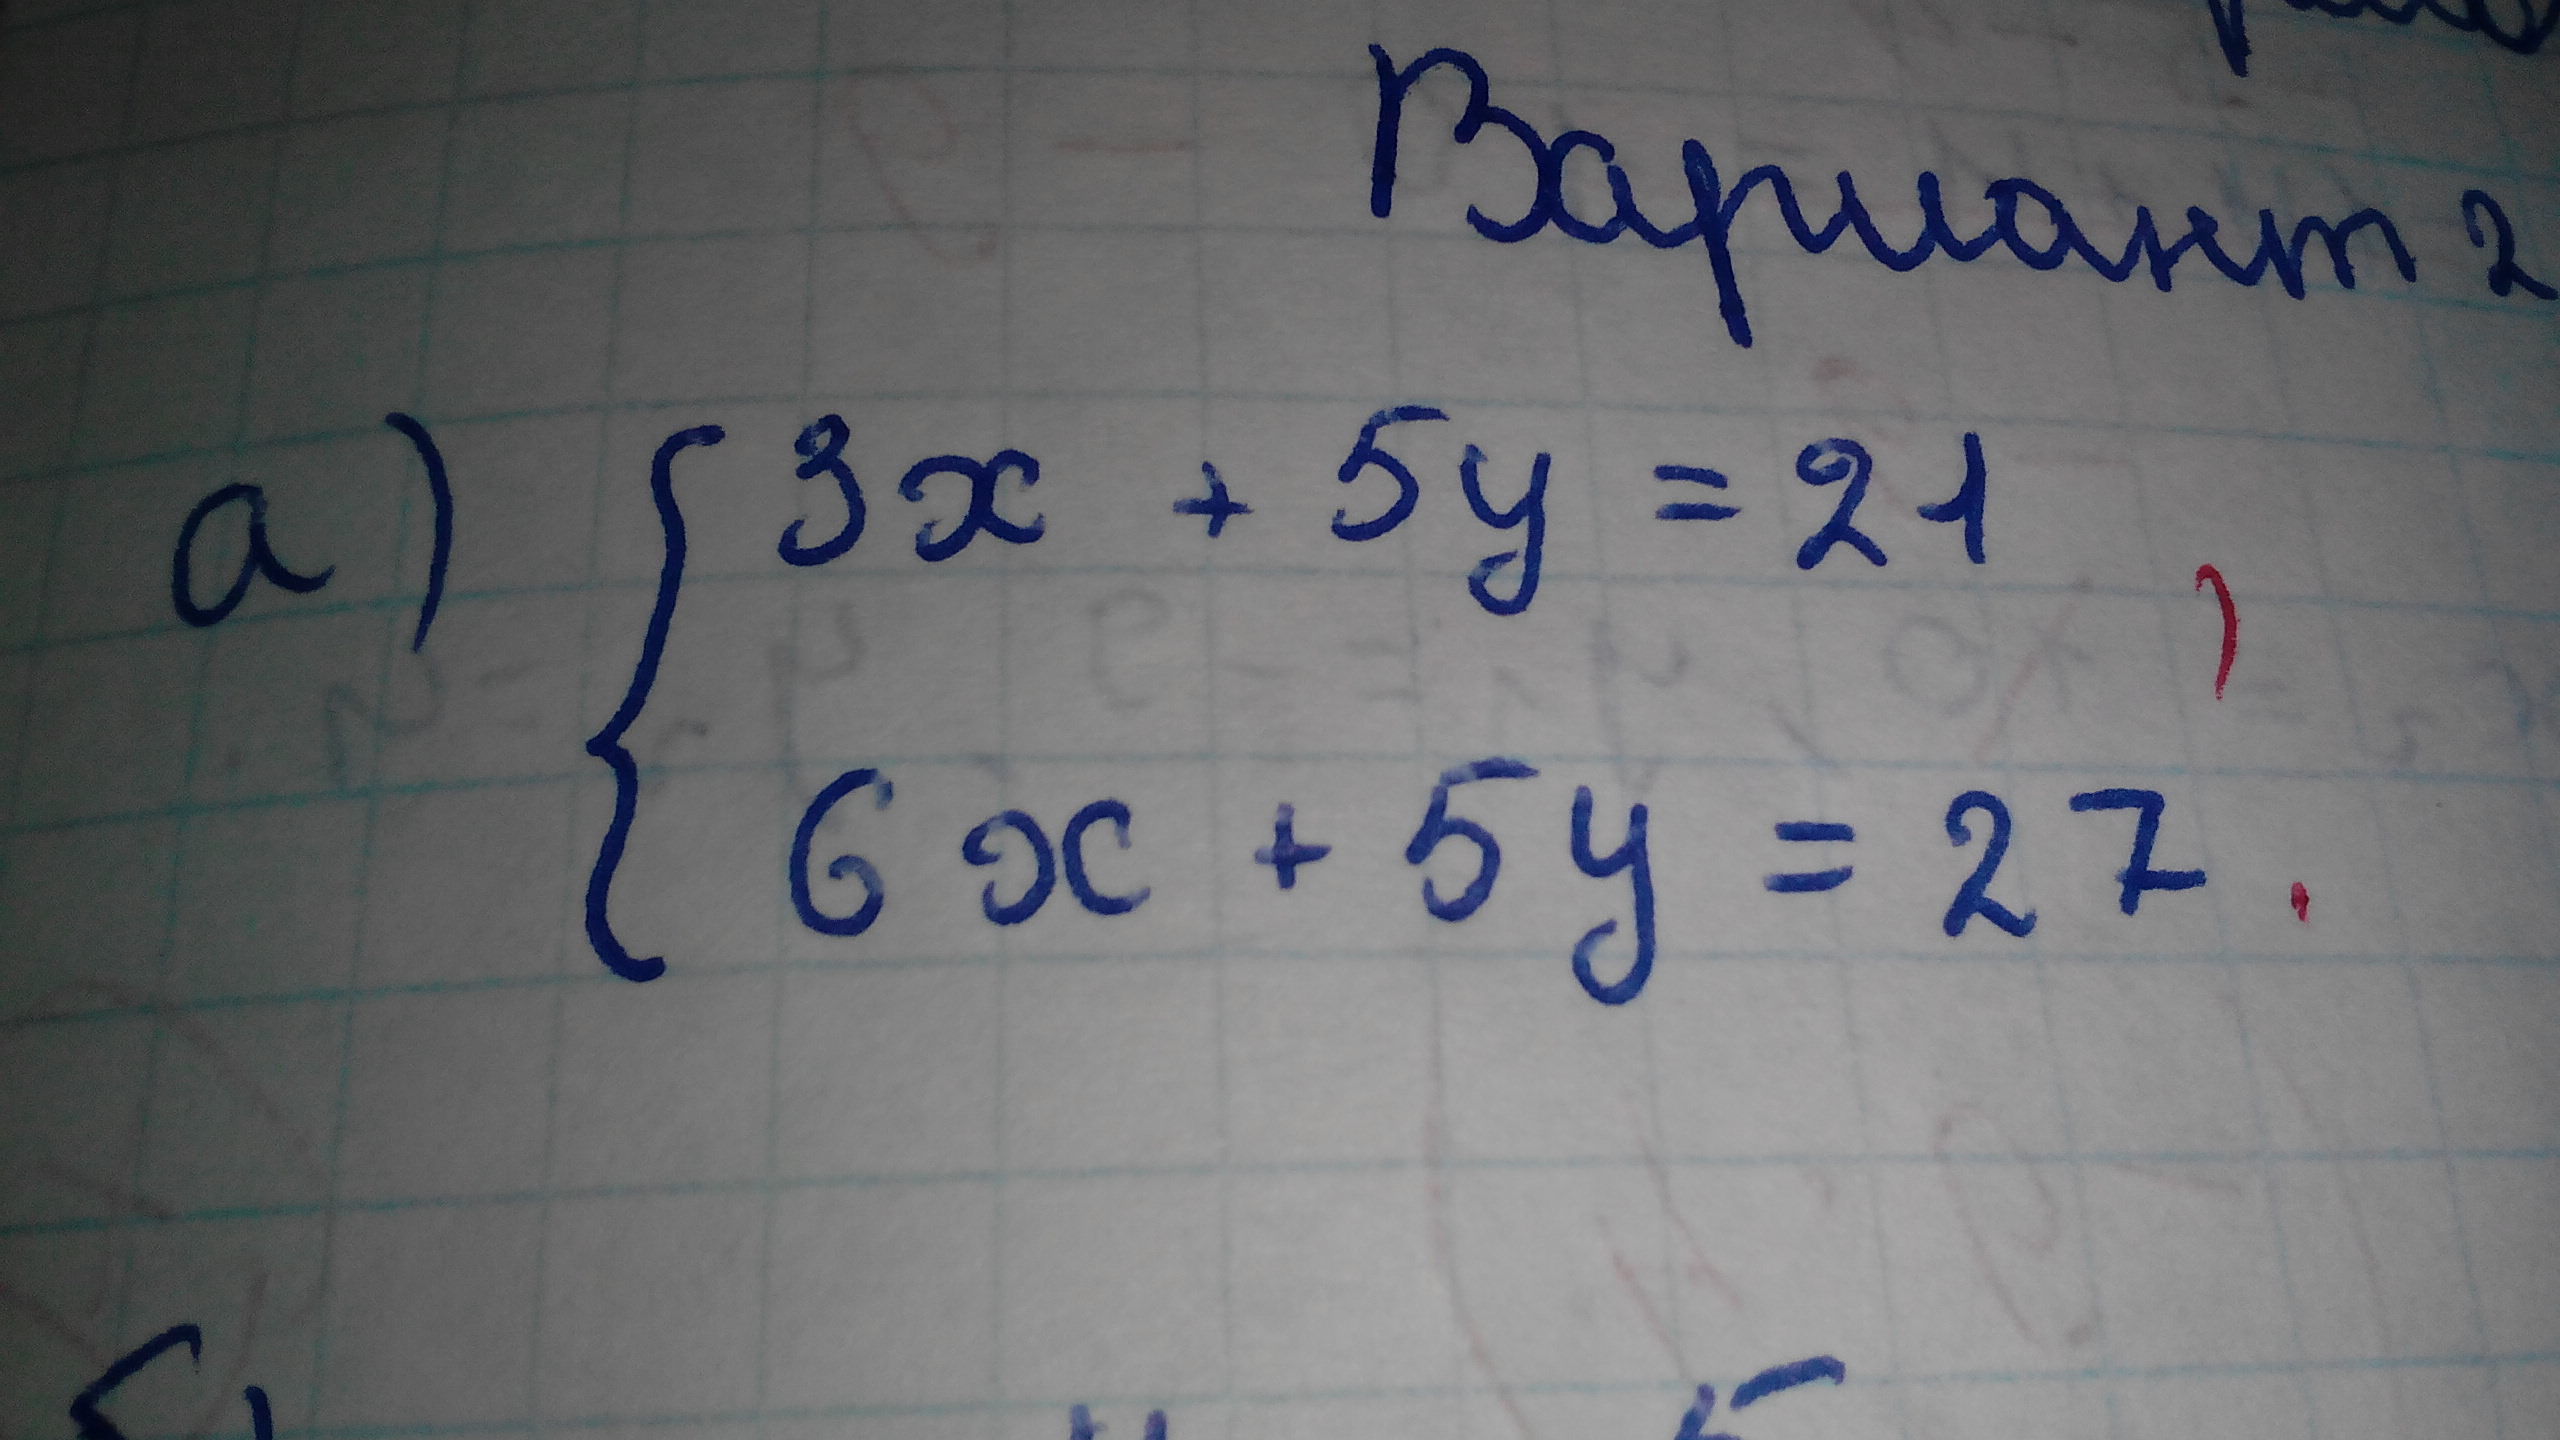 Вариант 2
а) { 3x + 5y = 21 ,
6x + 5y = 27 .